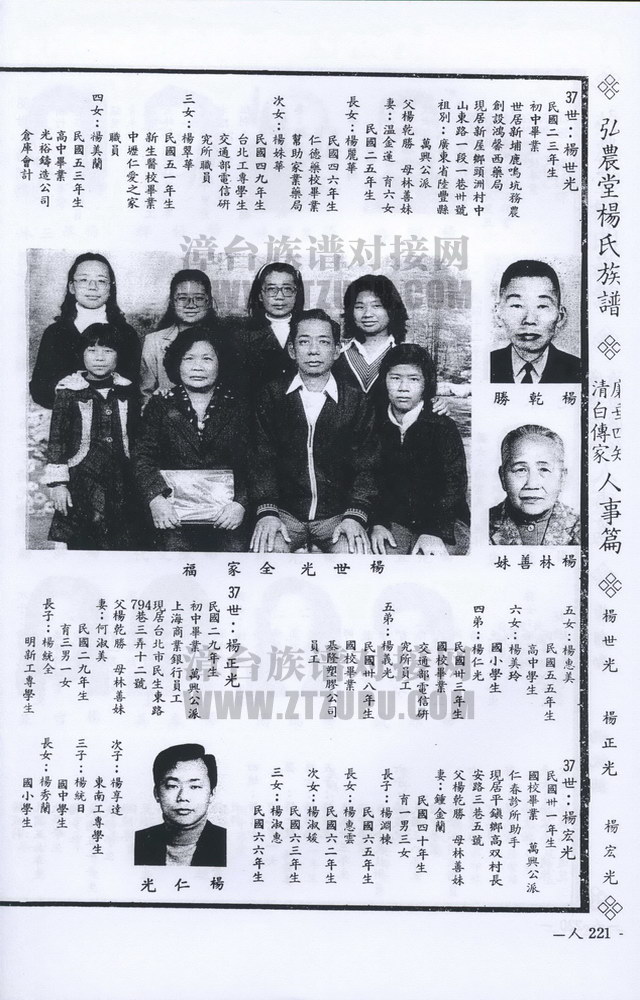 弘農堂楊氏族譜
清白傳家
人事篇
楊世光 楊正光 楊宏光
37世：楊世光
民國二三年生
初中畢業
世居新埔鹿鳴坑務農
創設鴻馨西藥局
現居新屋鄉頭洲村中
山東路一段一巷卅號
祖別：廣東省陸豐縣
萬興公派
父楊乾勝 母林善妹
妻：溫金蓮 育六女
民國二五年生
長女：楊麗華
民國四六年生
仁德藥校畢業
幫助家業藥局
次女：楊姝華
民國四九年生
台北工專學生
交通部電信研
究所職員
三女：楊翠華
民國五一年生
新生醫校畢業
中壢仁愛之家
職員
四女：楊美蘭
民國五三年生
高中畢業
光裕鑄造公司
倉庫會計
漳台族谱对接网
WWW.ZTZUPU.COM
楊乾勝
楊林善妹
楊世光全家福
五女：楊惠美
民國五五年生
高中學生
六女：楊美玲
國小學生
四弟：楊仁光
民國卅三年生
國校畢業
交通部電信研
究所員工
五弟：楊義光
民國卅八年生
國校畢業
基隆塑膠公司
員工
37世：楊正光
民國二九年生
初中畢業 萬興公派
上海商業銀行員工
現居台北市民生東路
794巷三弄十二號
父楊乾勝 母林善妹
妻：何淑美
民國二九年生
育三男一女
長子：楊統全
明新工專學生
漳台族谱对接网
WWW.ZTZUPU.COM
37世：楊宏光
民國卅一年生
國校畢業 萬興公派
仁春診所助手
現居平鎮鄉高双村長
安路三巷五號
父楊乾勝 母林善妹
妻：鍾金蘭
民國四十年生
育一男三女
長子：楊淵棟
民國六五年生
長女：楊惠雲
民國六二年生
次女：楊淑媛
民國六三年生
三女：楊淑惠
民國六六年生
楊仁光
次子：楊享達
東南工專學生
三子：楊統日
國中學生
長女：楊秀蘭
國小學生
—人 221 -